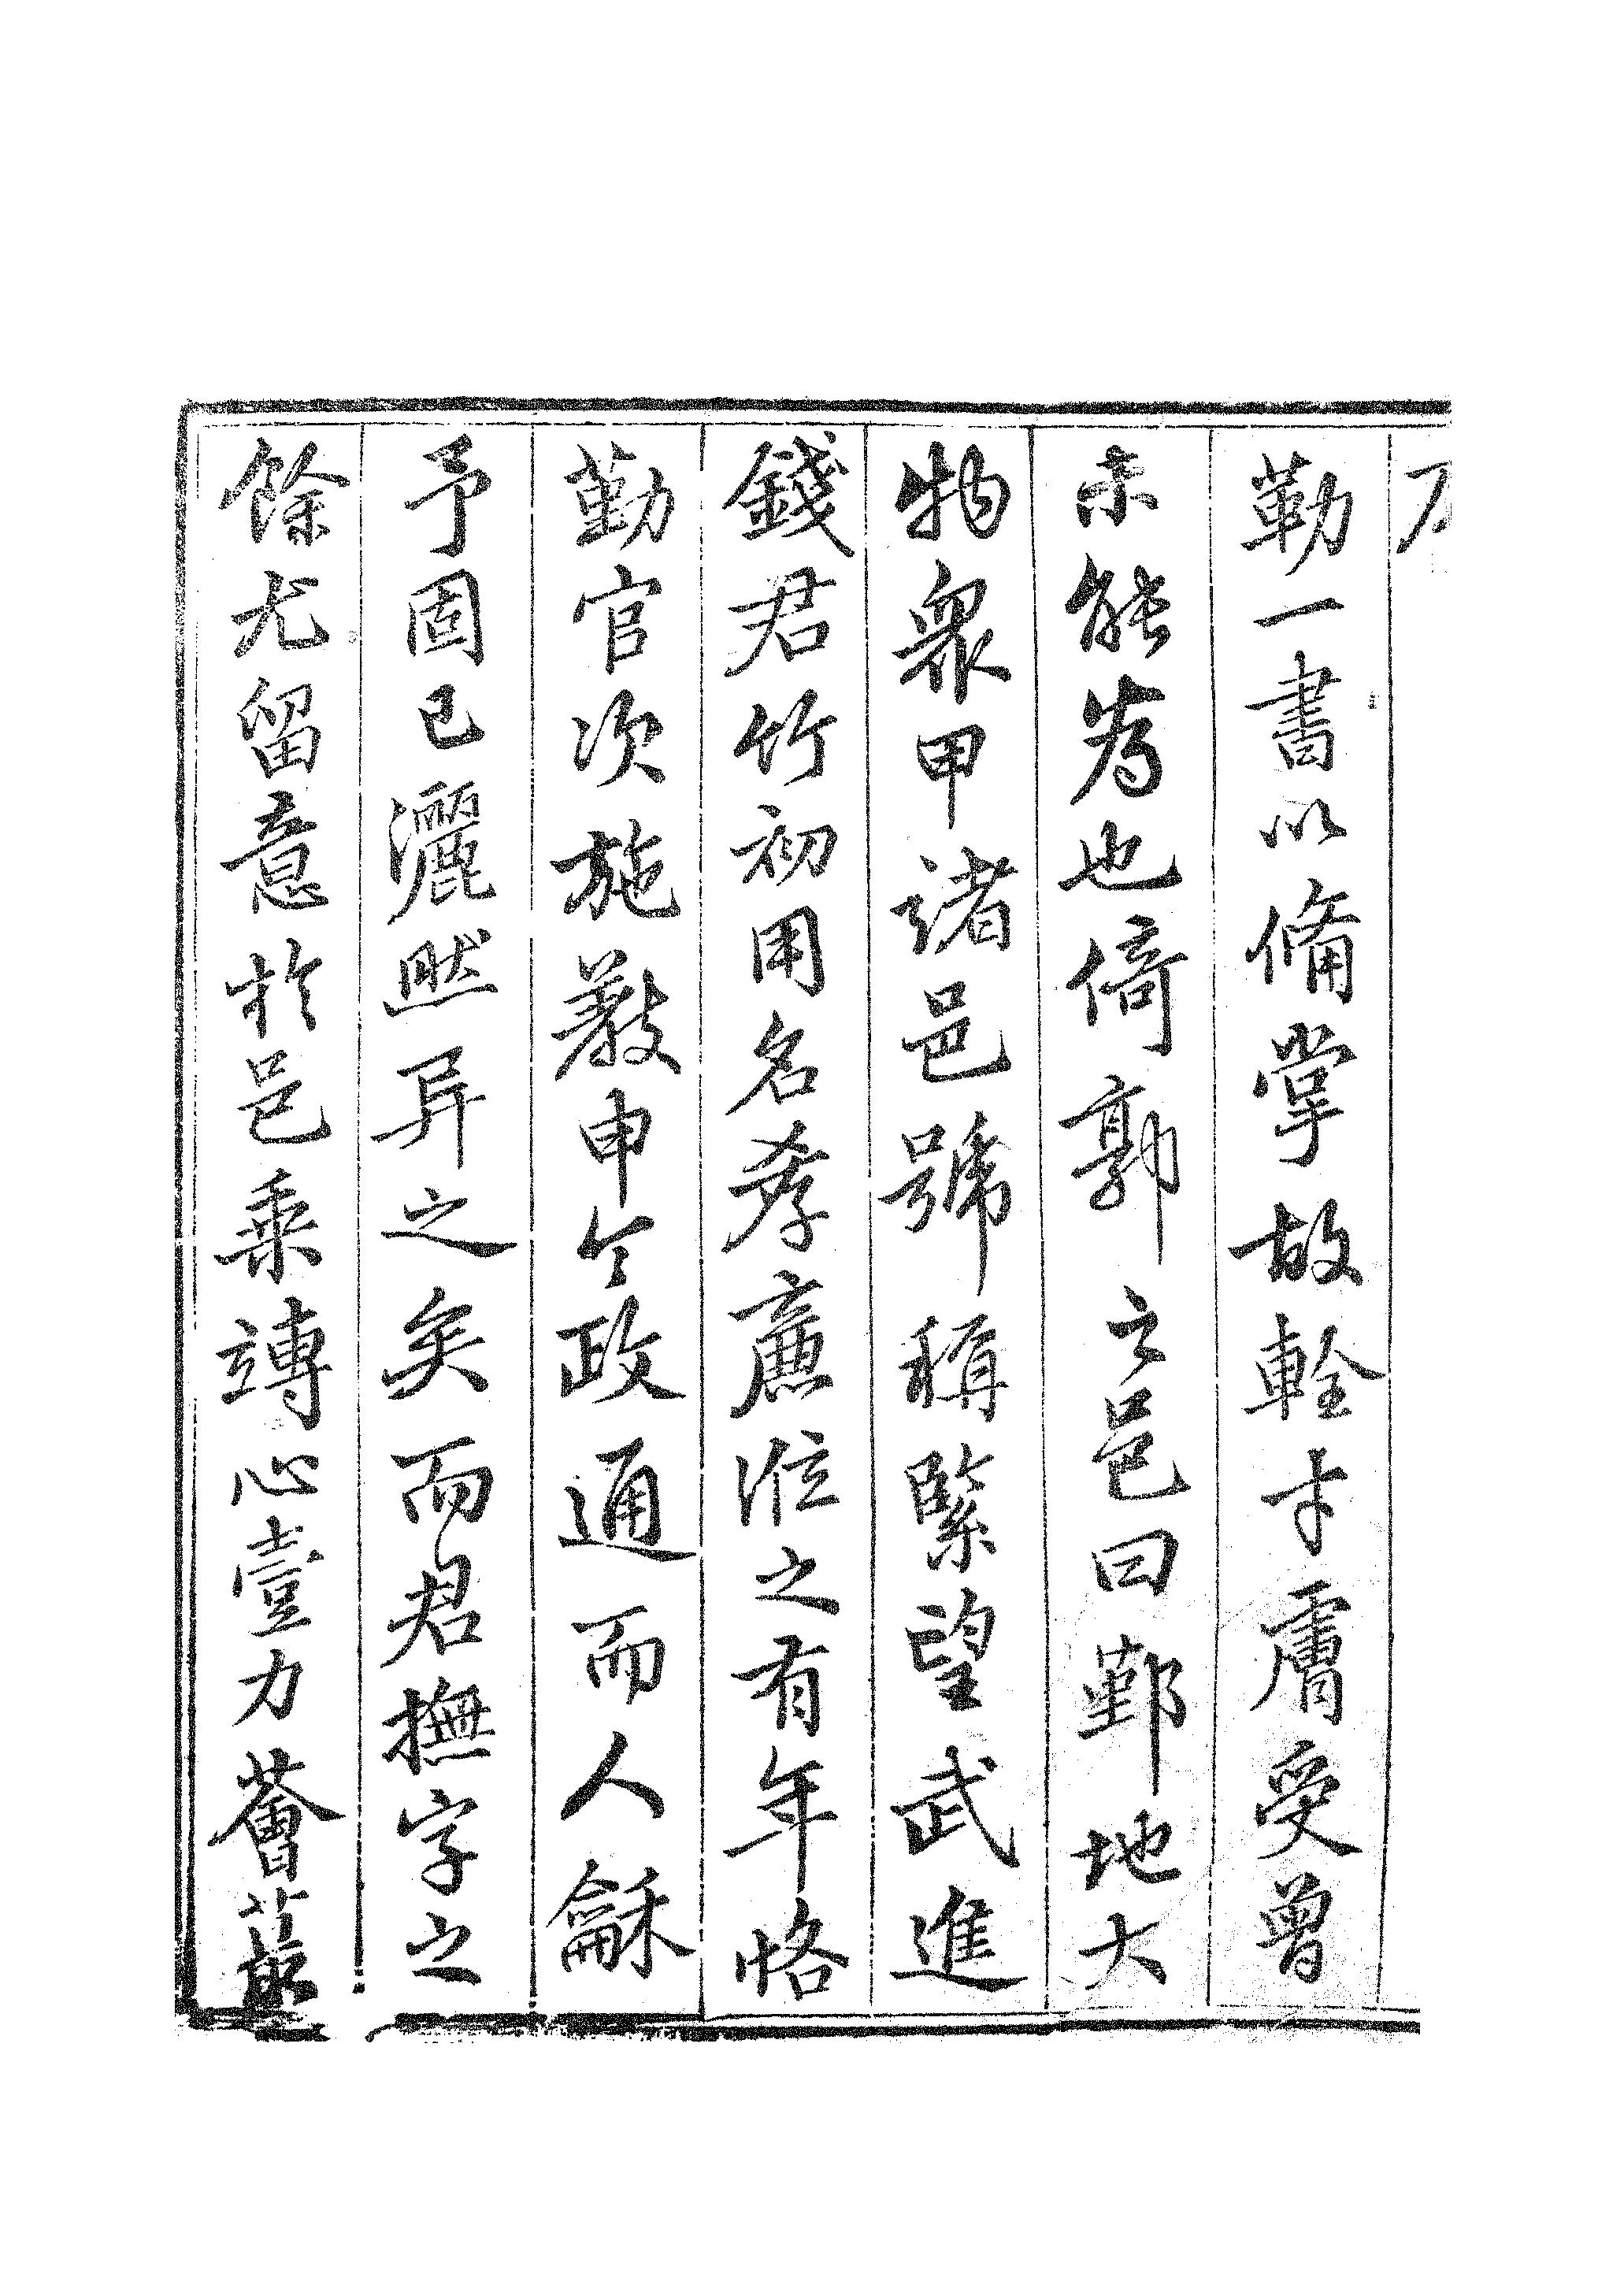 勒一書以俻掌故輇才膚受曾
未能為也倚郭之邑曰鄞地大
物衆甲諸邑號稱緊望武進
錢君竹初用名孝亷涖之有年恪
勤官次施教申令政通而人龢
予固已灑然异之矣而君撫字之
餘尤留意於邑乗竱心壹力薈蕞